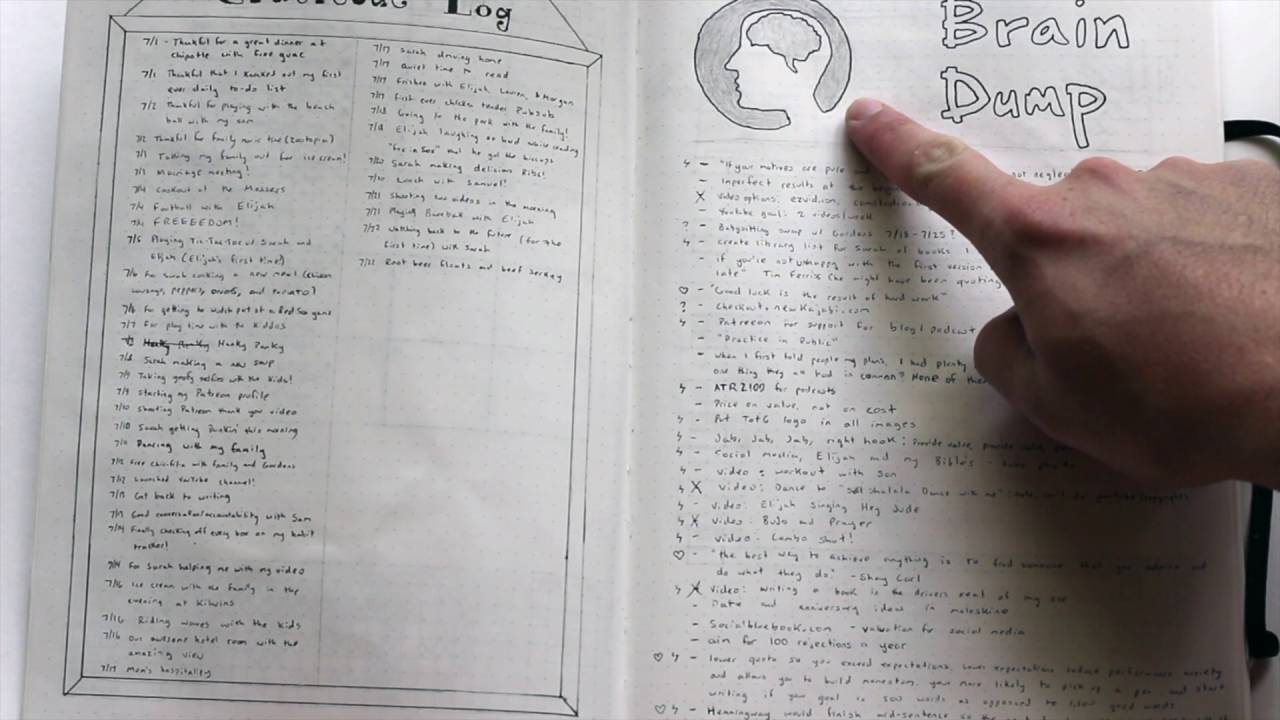 Gratitude Log
7/1 - Thankful for a great dinner at
chipotle with free guac
7/1 Thankful that I knocked out my first
ever daily to-do list
7/2 Thankful for playing with the beach
ball with my son
7/2 Thankful for family movie time (Zootopia)
7/3 Taking my family out for ice cream!
7/3 Marriage meeting!
7/4 Cookout at the Massers
7/4 Football with Elijah
7/4 FREEEEDOM!
7/5 Playing Tic-Tac-Toe w/ Sarah and
Elijah (Elijah's first time)
7/6 For Sarah cooking a new meal (chicken
sausage, peppers, onions, and tomato)
7/6 For getting to watch part of a Red Sox game
7/7 For play time with the kiddos
Hanky Panky
7/8 Sarah making a new soup
7/9 Taking goofy selfies with the kids!
7/9 Starting my Patreon profile
7/10 Shooting Patreon thank you video
7/10 Sarah getting Dunkin' this morning
7/11 Dancing with my family
7/12 Free Chic-fil-a with family and Gordons
7/12 Launched YouTube channel!
7/13 Got back to writing
7/13 Good conversation/accountability with Sam
7/14 Finally checking off every box on my habit
tracker!
7/14 For Sarah helping me with my video
7/16 Ice cream with the family in the
evening at Kilwins
7/16 Riding waves with the kids
7/16 Our awesome hotel room with the
amazing view
7/17 Mom's hospitality
7/17 Sarah driving home
7/17 Quiet time to read
7/17 Frisbee with Elijah, Lauren, & Morgan
7/17 First ever chicken tender PubSub
7/18 Going to the park with the family!
7/18 Elijah laughing so hard while reading
that he got the hiccups
7/20 Sarah making delicious Ribs!
7/20 Lunch with Samuel!
7/21 Shooting two videos in the morning
7/21 Playing Baseball with Elijah
7/22 Watching Back to the Future (for the
first time) with Sarah
7/22 Root beer floats and beef jerky
Brain
Dump
- "If your motives are pure not
- Imperfect results at the
X video options: ezvid.com,
- Youtube goal: 2 videos/week
? - Babysitting swap w/ Gordons 7/18-7/25?
- Create library list for Sarah of books I
- if you're not unhappy with the first version
late" Tim Ferriss (he might have been quoting
♡ - "Good luck is the result of hard work"
? - Checkout newkajabi.com
- Patreon for support for blog/podcast
- "Practice in Public"
- When I first told people my plans, I had plenty
one thing they all had in common? None of them
- ATR2100 for podcasts
- Price on value, not on cost
- Put TotG logo in all images
- Jab, Jab, Jab, right hook: Provide value, provide value,
- Social media, Elijah and my Bible's
- video: workout with son
X video: Dance to "
- video: Elijah singing Hey Jude
X video: BuJo and Prayer
- video: Combo shot!
♡ - "the best way to achieve anything is to find someone that you admire and
do what they do" - Shay Carl
X Video: writing a book in the drivers seat of my car
- Date and anniversary ideas in moleskine
- Socialbluebook.com - valuation for social media
- aim for 100 rejections a year
♡ - lower quota so you exceed expectations. Lower expectations reduce performance anxiety
and allows you to build momentum. you more likely to pick up a pen and start
writing if your goal is 500 words as opposed to 1,000 good words
♡ - Hemmingway would finish mid-sentence so